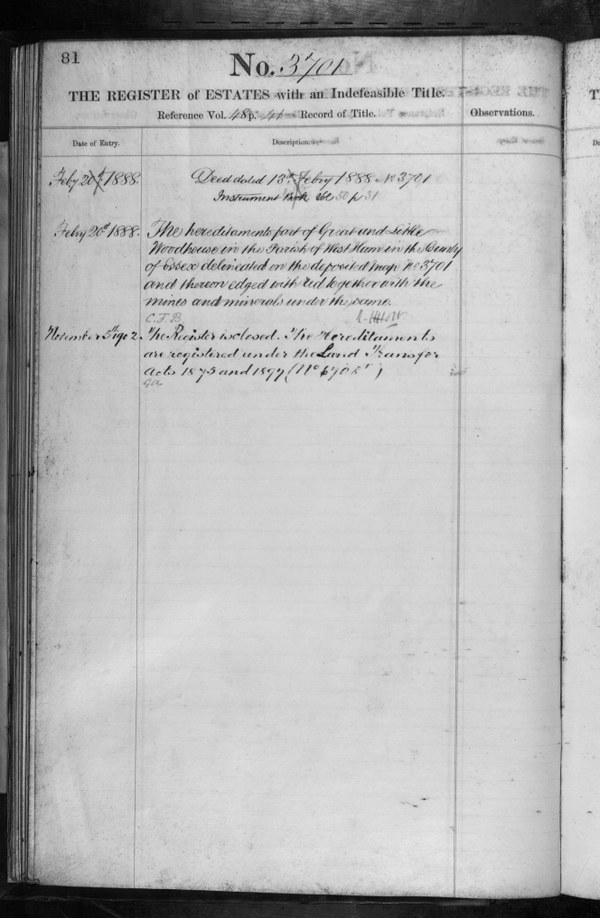 81
No. 3701
THE REGISTER of ESTATES with an Indefeasible Title.
Reference Vol. 48 p. 41 Record of Title.
Observations.
Date of Entry.
Description.
Feby 20th 1888. Deed dated 13th Febry 1888 No 3701
Instrument Book 50 p 31
Febry 20th 1888. The hereditaments part of Great and Little
Woodhouse in the Parish of West Ham in the County
of Essex delineated on the deposited map No 3701
and thereon edged with red together with the
mines and minerals under the same.
C.F.B.
November 5th 1902. The Register is closed. The Hereditaments
are registered under the Land Transfer
Acts 1875 and 1897 (No